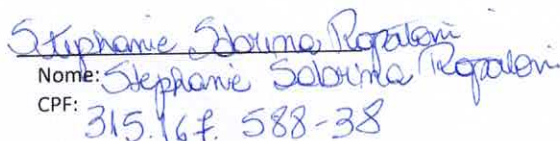 Stephanie Sabrina Ropaloni
Nome: Stephanie Sabrina Ropaloni
CPF: 315.167.588-38